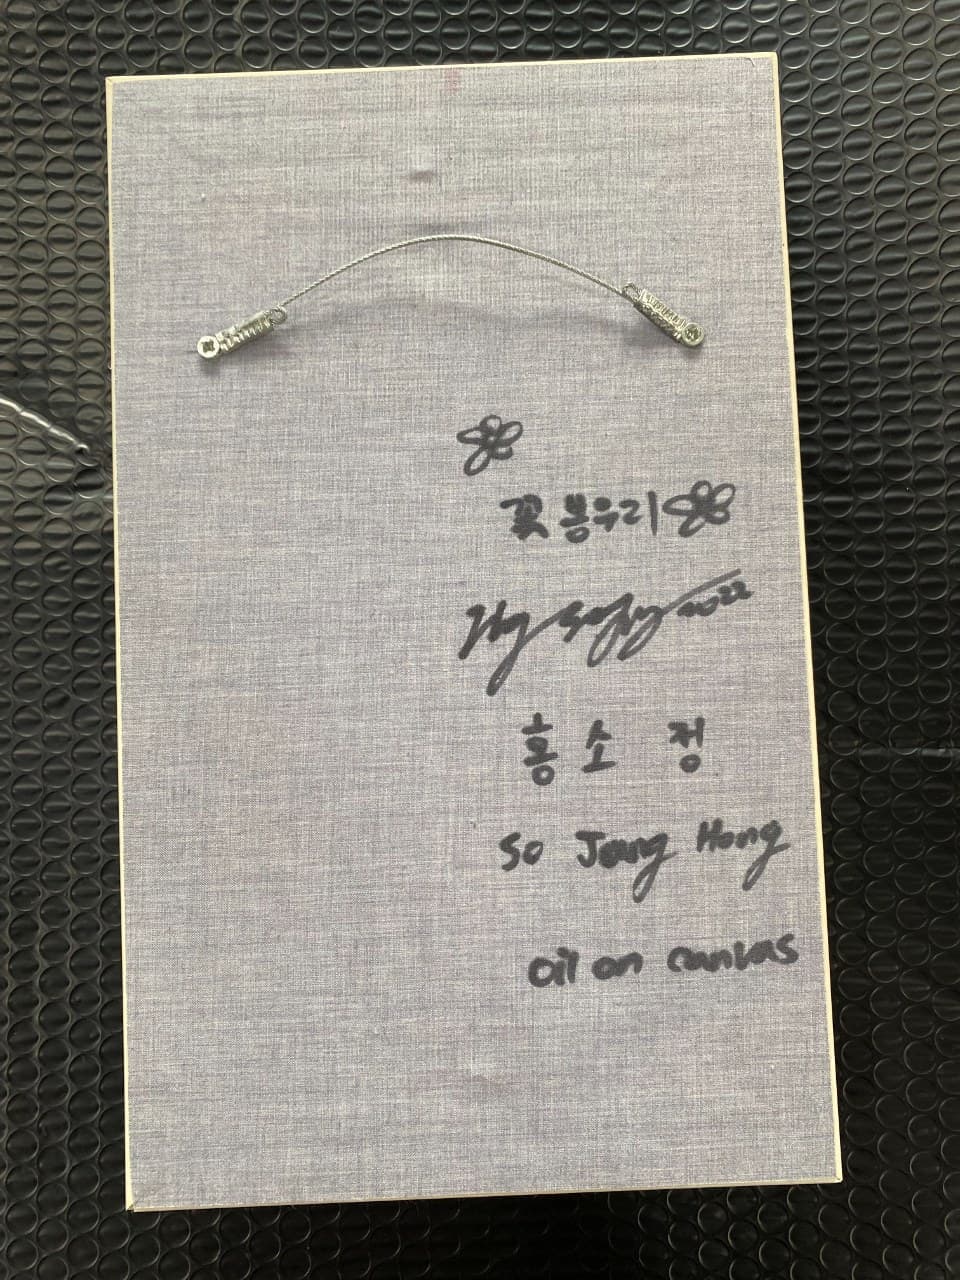 꽃봉우리
2022
홍소정
So Jeong Hong
oil on canvas